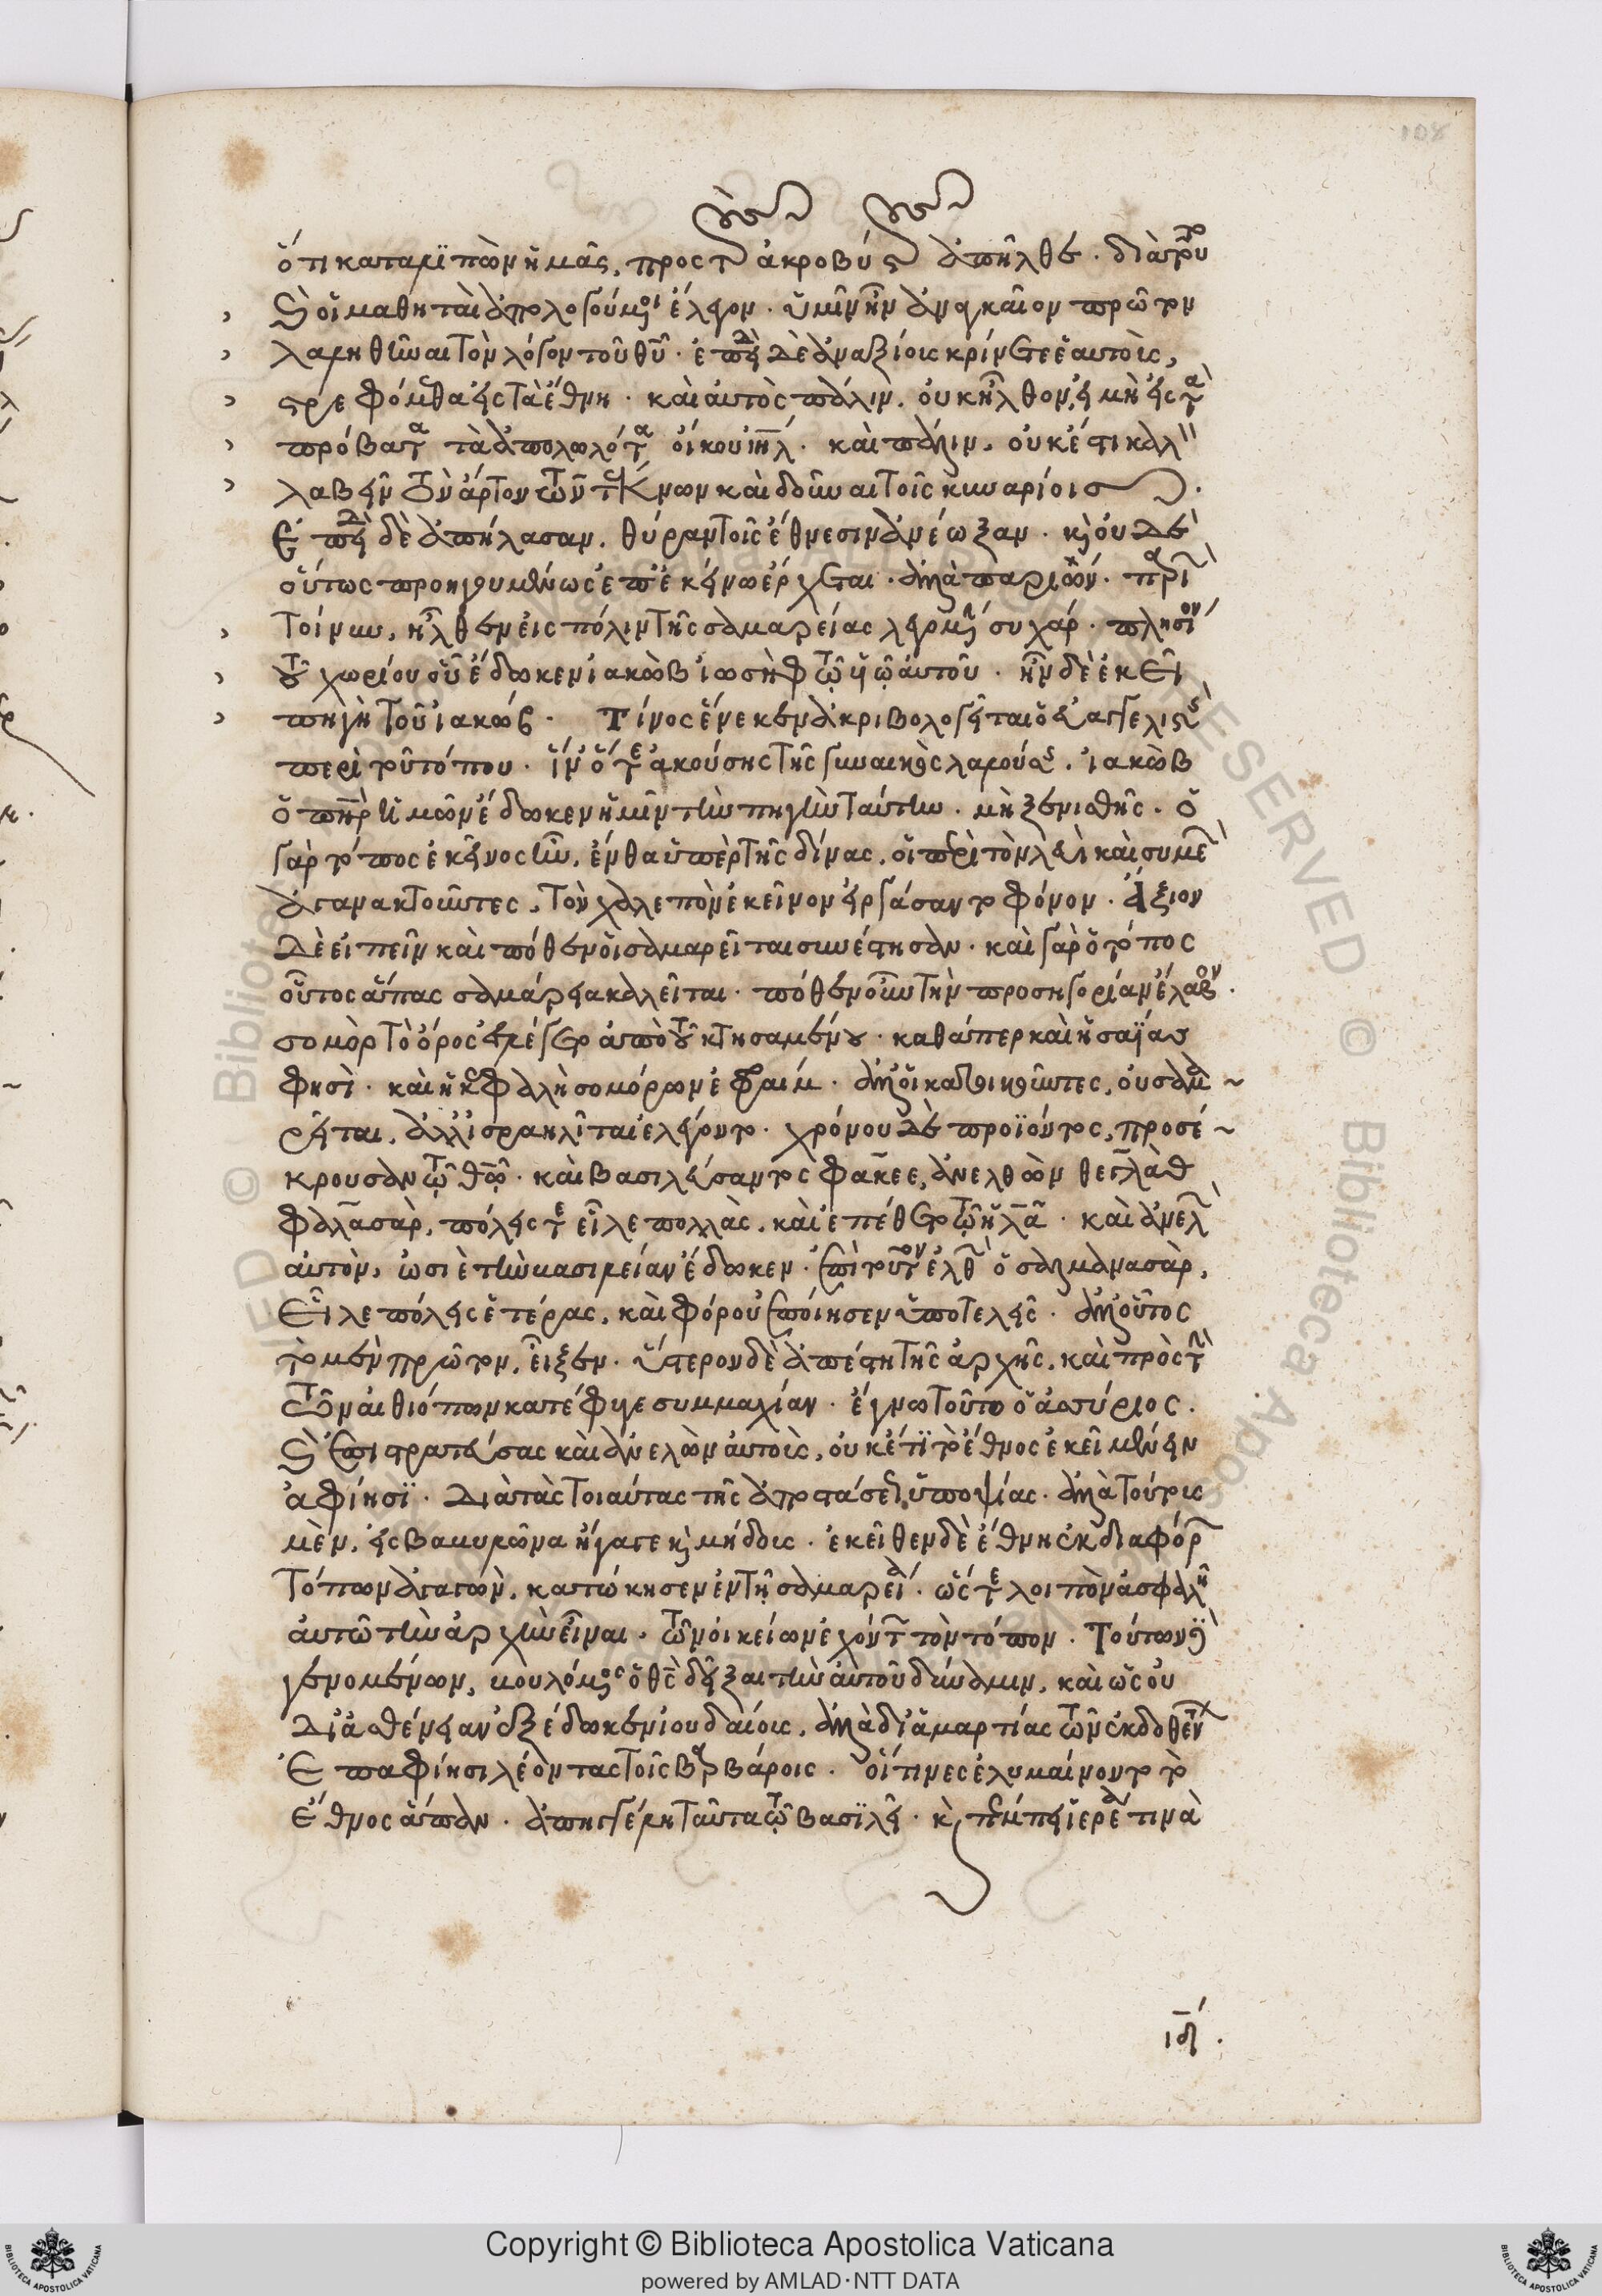 ὅτι καταλιπὼν ἡμᾶς, πρὸς τοὺς ἀκροβύστους ἀπῆλθε. διὰ τοῦτο
καὶ οἱ μαθηταὶ ἀπολογούμενοι ἔλεγον. ὑμῖν ἦν ἀναγκαῖον πρῶτον
λαληθῆναι τὸν λόγον τοῦ θυ. ἐπειδὴ δὲ ἀναξίους κρίνετε ἑαυτοὺς,
στρεφόμεθα εἰς τὰ ἔθνη. καὶ αὐτὸς πάλιν. οὐκ ἦλθον, εἰ μὴ εἰς τὰ
πρόβατα τὰ ἀπολωλότα οἴκου ιηλ. καὶ πάλιν. οὐκ ἔστι καλὸν
λαβεῖν τὸν ἄρτον τῶν τέκνων καὶ δοῦναι τοῖς κυναρίοις.
Ἐπειδὴ δὲ ἀπήλασαν, θύραν τοῖς ἔθνεσιν ἀνέωξαν. καὶ οὐδὲ
οὕτως προηγουμένως ἐπ' ἐκείνω ἔρχεται. ἀλλὰ παριών. παριὼν
τοίνυν, ἦλθεν εἰς πόλιν τῆς σαμαρείας λεγομένην συχάρ. πλησίον
τοῦ χωρίου οὗ ἔδωκεν ἰακὼβ ἰωσὴφ τῶ υἱῶ αὐτοῦ. ἦν δὲ ἐκεῖ
πηγὴ τοῦ ἰακώβ. Τίνος ἕνεκεν ἀκριβολογεῖται ὁ εὐαγγελιστὴς
περὶ τοῦ τόπου. ἵν' ὅταν ἀκούσης τῆς γυναικὸς λεγούσης. ἰακὼβ
ὁ πηρ ἡμῶν ἔδωκεν ἡμῖν τὴν πηγὴν ταύτην. μὴ ξενισθῆς. ὁ
γὰρ τόπος ἐκεῖνος ἦν, ἔνθα ὑπὲρ τῆς δίνας, οἱ περὶ τὸν λευὶ καὶ συμεὼν
ἀγανακτοῦντες, τὸν χαλεπὸν ἐκεῖνον εἰργάσαντο φόνον. ἄξιον
δὲ εἰπεῖν καὶ πόθεν οἱ σαμαρεῖται συνέστησαν. καὶ γὰρ ὁ τόπος
οὗτος ἅπας σαμάρεια καλεῖται. πόθεν οὖν τὴν προσηγορίαν ἔλαβον.
σομὸρ τὸ ὄρος ἐλέγετο ἀπὸ τοῦ κτησαμένου. καθάπερ καὶ ἡσαΐας
φησὶ. καὶ ἡ κεφαλὴ σομόρων ἐφραίμ. ἀλλ' οἱ κατοικοῦντες, οὐ σαμα
ρεῖται, ἀλλ' ἰσραηλῖται ἐλέγοντο. χρόνου δὲ προϊόντος, προσέ
κρουσαν τῶ θῶ. καὶ βασιλεύσαντος φακεε, ἀνελθὼν θεγλὰθ
φαλασὰρ, πόλεις τε εἷλε πολλὰς, καὶ ἐπέθετο τῶ ἠλᾶ. καὶ ἀνελὼν
αὐτὸν, ὡσιὲ τὴν βασιλείαν ἔδωκεν. ἐπὶ τοῦτον ἐλθὼν ὁ σαλμανασὰρ,
εἷλε πόλεις ἑτέρας, καὶ φόρου ἐποίησεν ὑποτελεῖς. ἀλλ' οὗτος
τὸ μὲν πρῶτον, εἶξεν. ὕστερον δὲ ἀπέστη τῆς ἀρχῆς, καὶ πρὸς τὴν
τῶν αἰθιόπων κατέφυγε συμμαχίαν. ἔγνω τοῦτο ὁ ἀσσύριος.
καὶ ἐπιστρατεύσας καὶ ἀνελὼν αὐτοὺς, οὐκέτι τὸ ἔθνος ἐκεῖ μένειν
ἀφίησϊ. διὰ τὰς τοιαύτας τῆς ἀποστάσεως ὑποψίας. ἀλλὰ τούτους
μὲν, εἰς βαβυλῶνα ἤγαγε καὶ μήδους. ἐκεῖθεν δὲ ἔθνη ἐκ διαφόρων
τόπων ἀγαγὼν, κατώκησεν ἐν τῆ σαμαρεία. ὥστε λοιπὸν ἀσφαλῆ
αὐτῶ τὴν ἀρχὴν εἶναι. τῶν οἰκείων ἐχόντων τὸν τόπον. Τούτων δὲ
γενομένων, βουλόμενος ὁ θς δεῖξαι τὴν αὐτοῦ δύναμιν, καὶ ὡς οὐ
δι' ἀσθένειαν ἐξέδωκεν ἰουδαίους, ἀλλὰ δι' ἁμαρτίας τῶν ἐκδοθέντων
ἐπαφίησι λέοντας τοῖς βαρβάροις. οἵτινες ἐλυμαίνοντο τὸ
ἔθνος ἅπαν. ἀπηγγέλη ταῦτα τῶ βασϊλεῖ. καὶ πέμπει ἱερέα τινὰ